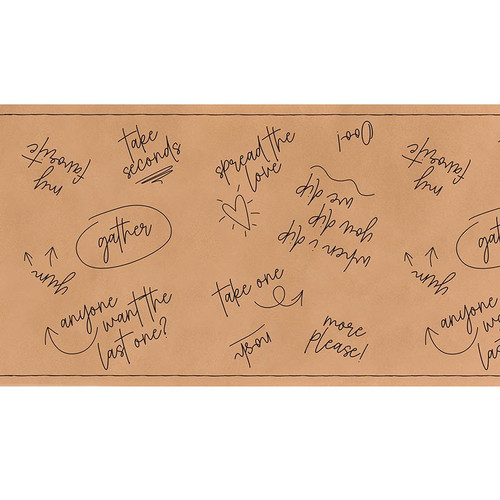 my
favorite
take
seconds
spread the
love
Ooo!
when i dip
you dip
we dip
my
favorite
gather
gat
yum
yum
take one
anyone
want the
last one?
nosh
more
please!
anyone
wa
las